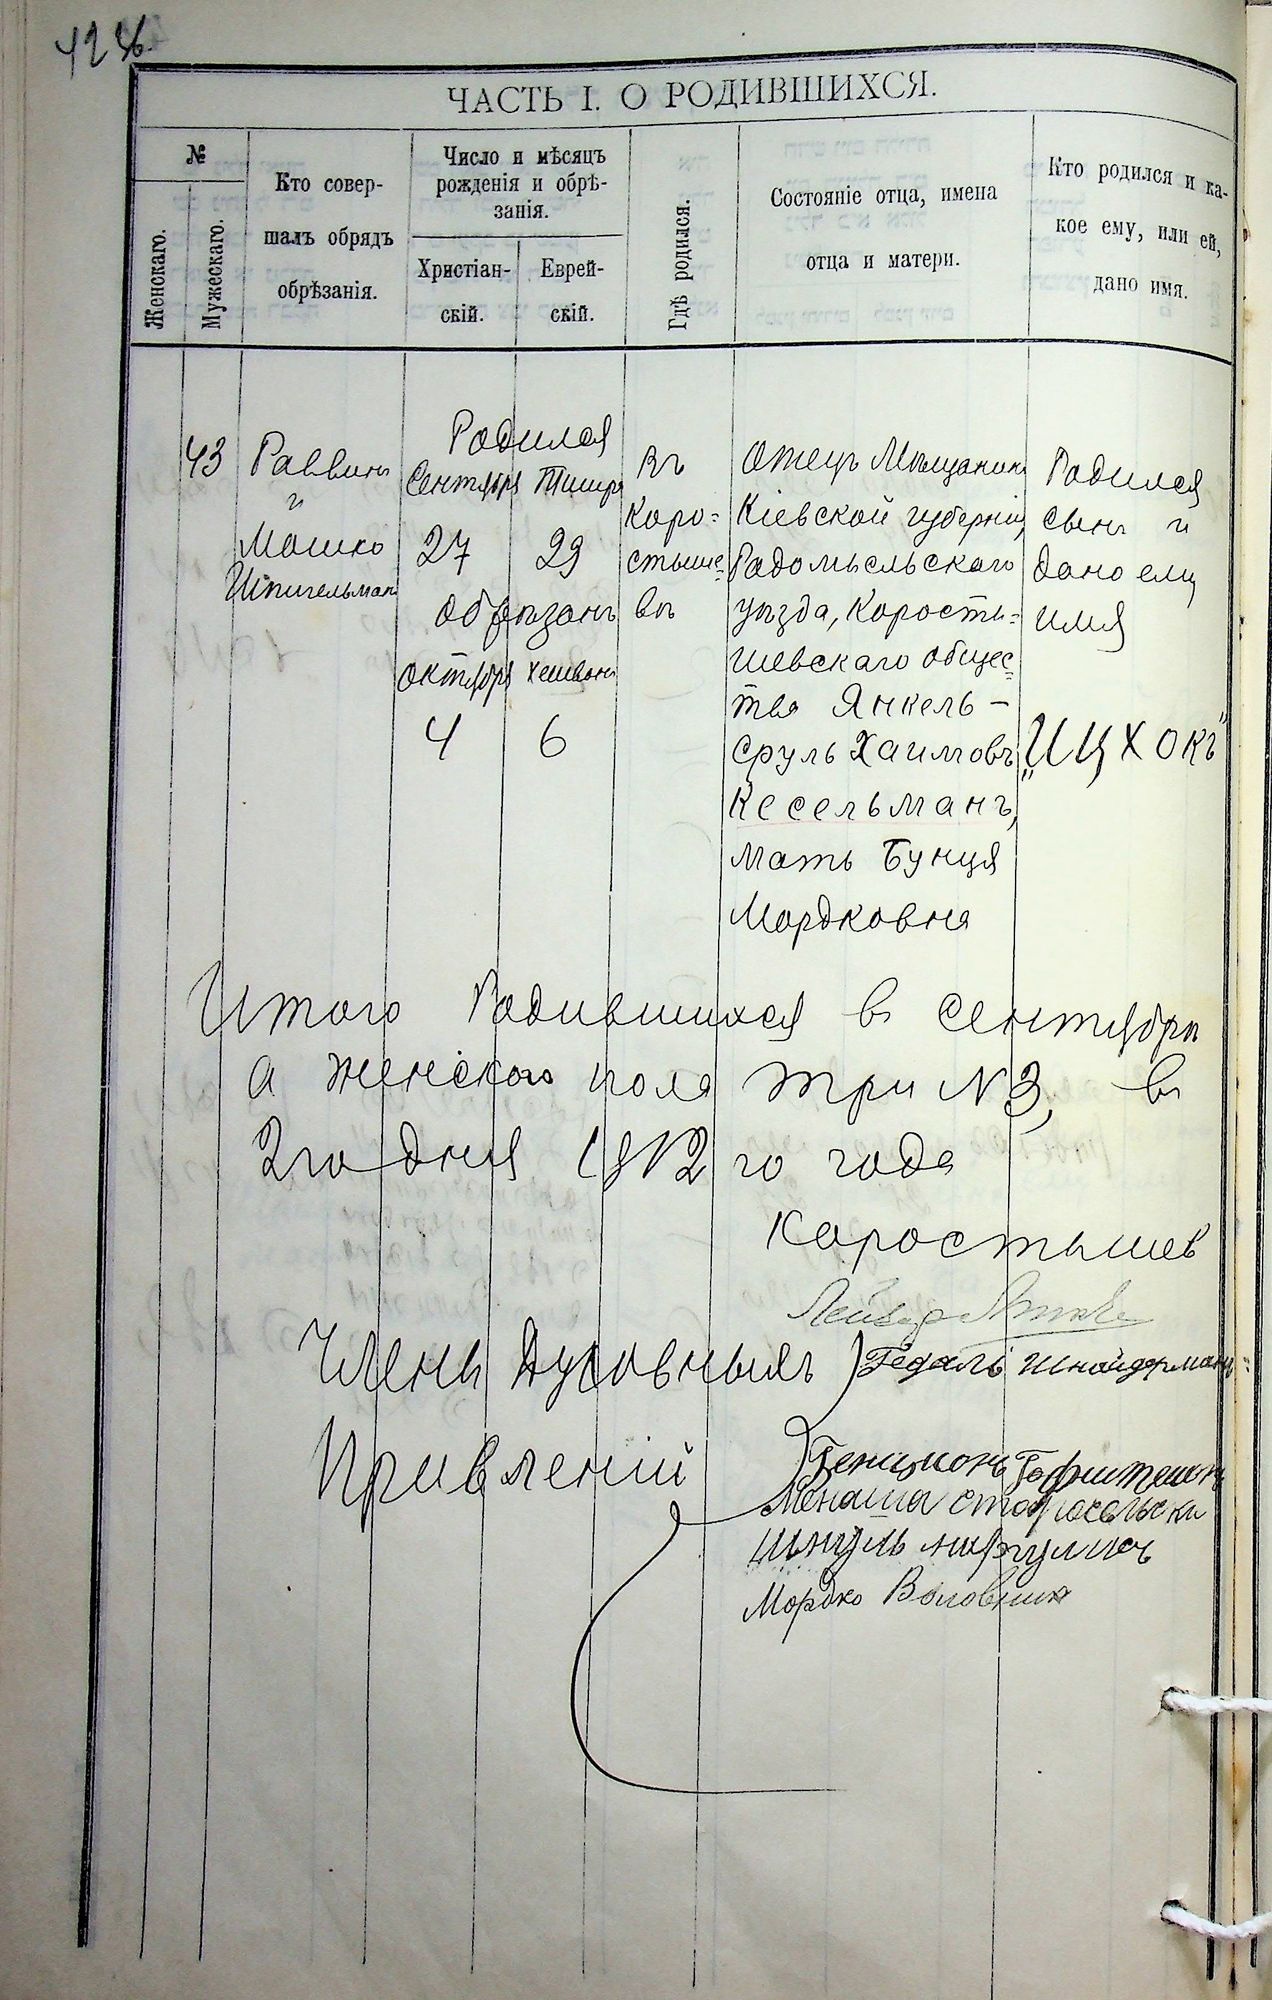 ЧАСТЬ I. О РОДИВШИХСЯ.
№
Женскаго.
Мужескаго.
Кто совер-
шалъ обрядъ
обрѣзанія.
Число и мѣсяцъ
рожденія и обрѣ-
занія.
Христіан-
скій.
Еврей-
скій.
Гдѣ родился.
Состояніе отца, имена
отца и матери.
Кто родился и ка-
кое ему, или ей,
дано имя.
43
Раввинъ
и
Мошко
Шпигельман
Родился
Сентября Тишри
27 29
обрѣзанъ
октября хешвон
4 6
Въ
Коро=
стыше=
вѣ
Отецъ Мѣщанинъ
Кіевской губерніи,
Радомысльскаго
уѣзда, Корости=
шевскаго общес=
тва Янкель-
Сруль Хаимовъ
Кесельманъ,
мать Бунця
Мордковна
Родился
сынъ и
дано ему
имя
„Ицхокъ"
Итого Родившихся в Сентябрѣ
а женскаго пола три N 3, в
2го дня 1912 го года
Коростышев
Члены Духовныхъ
Правленій
Гедаль Шнайдерманъ
Бенционъ
Менаша
Шмуль
Мордко Воловник